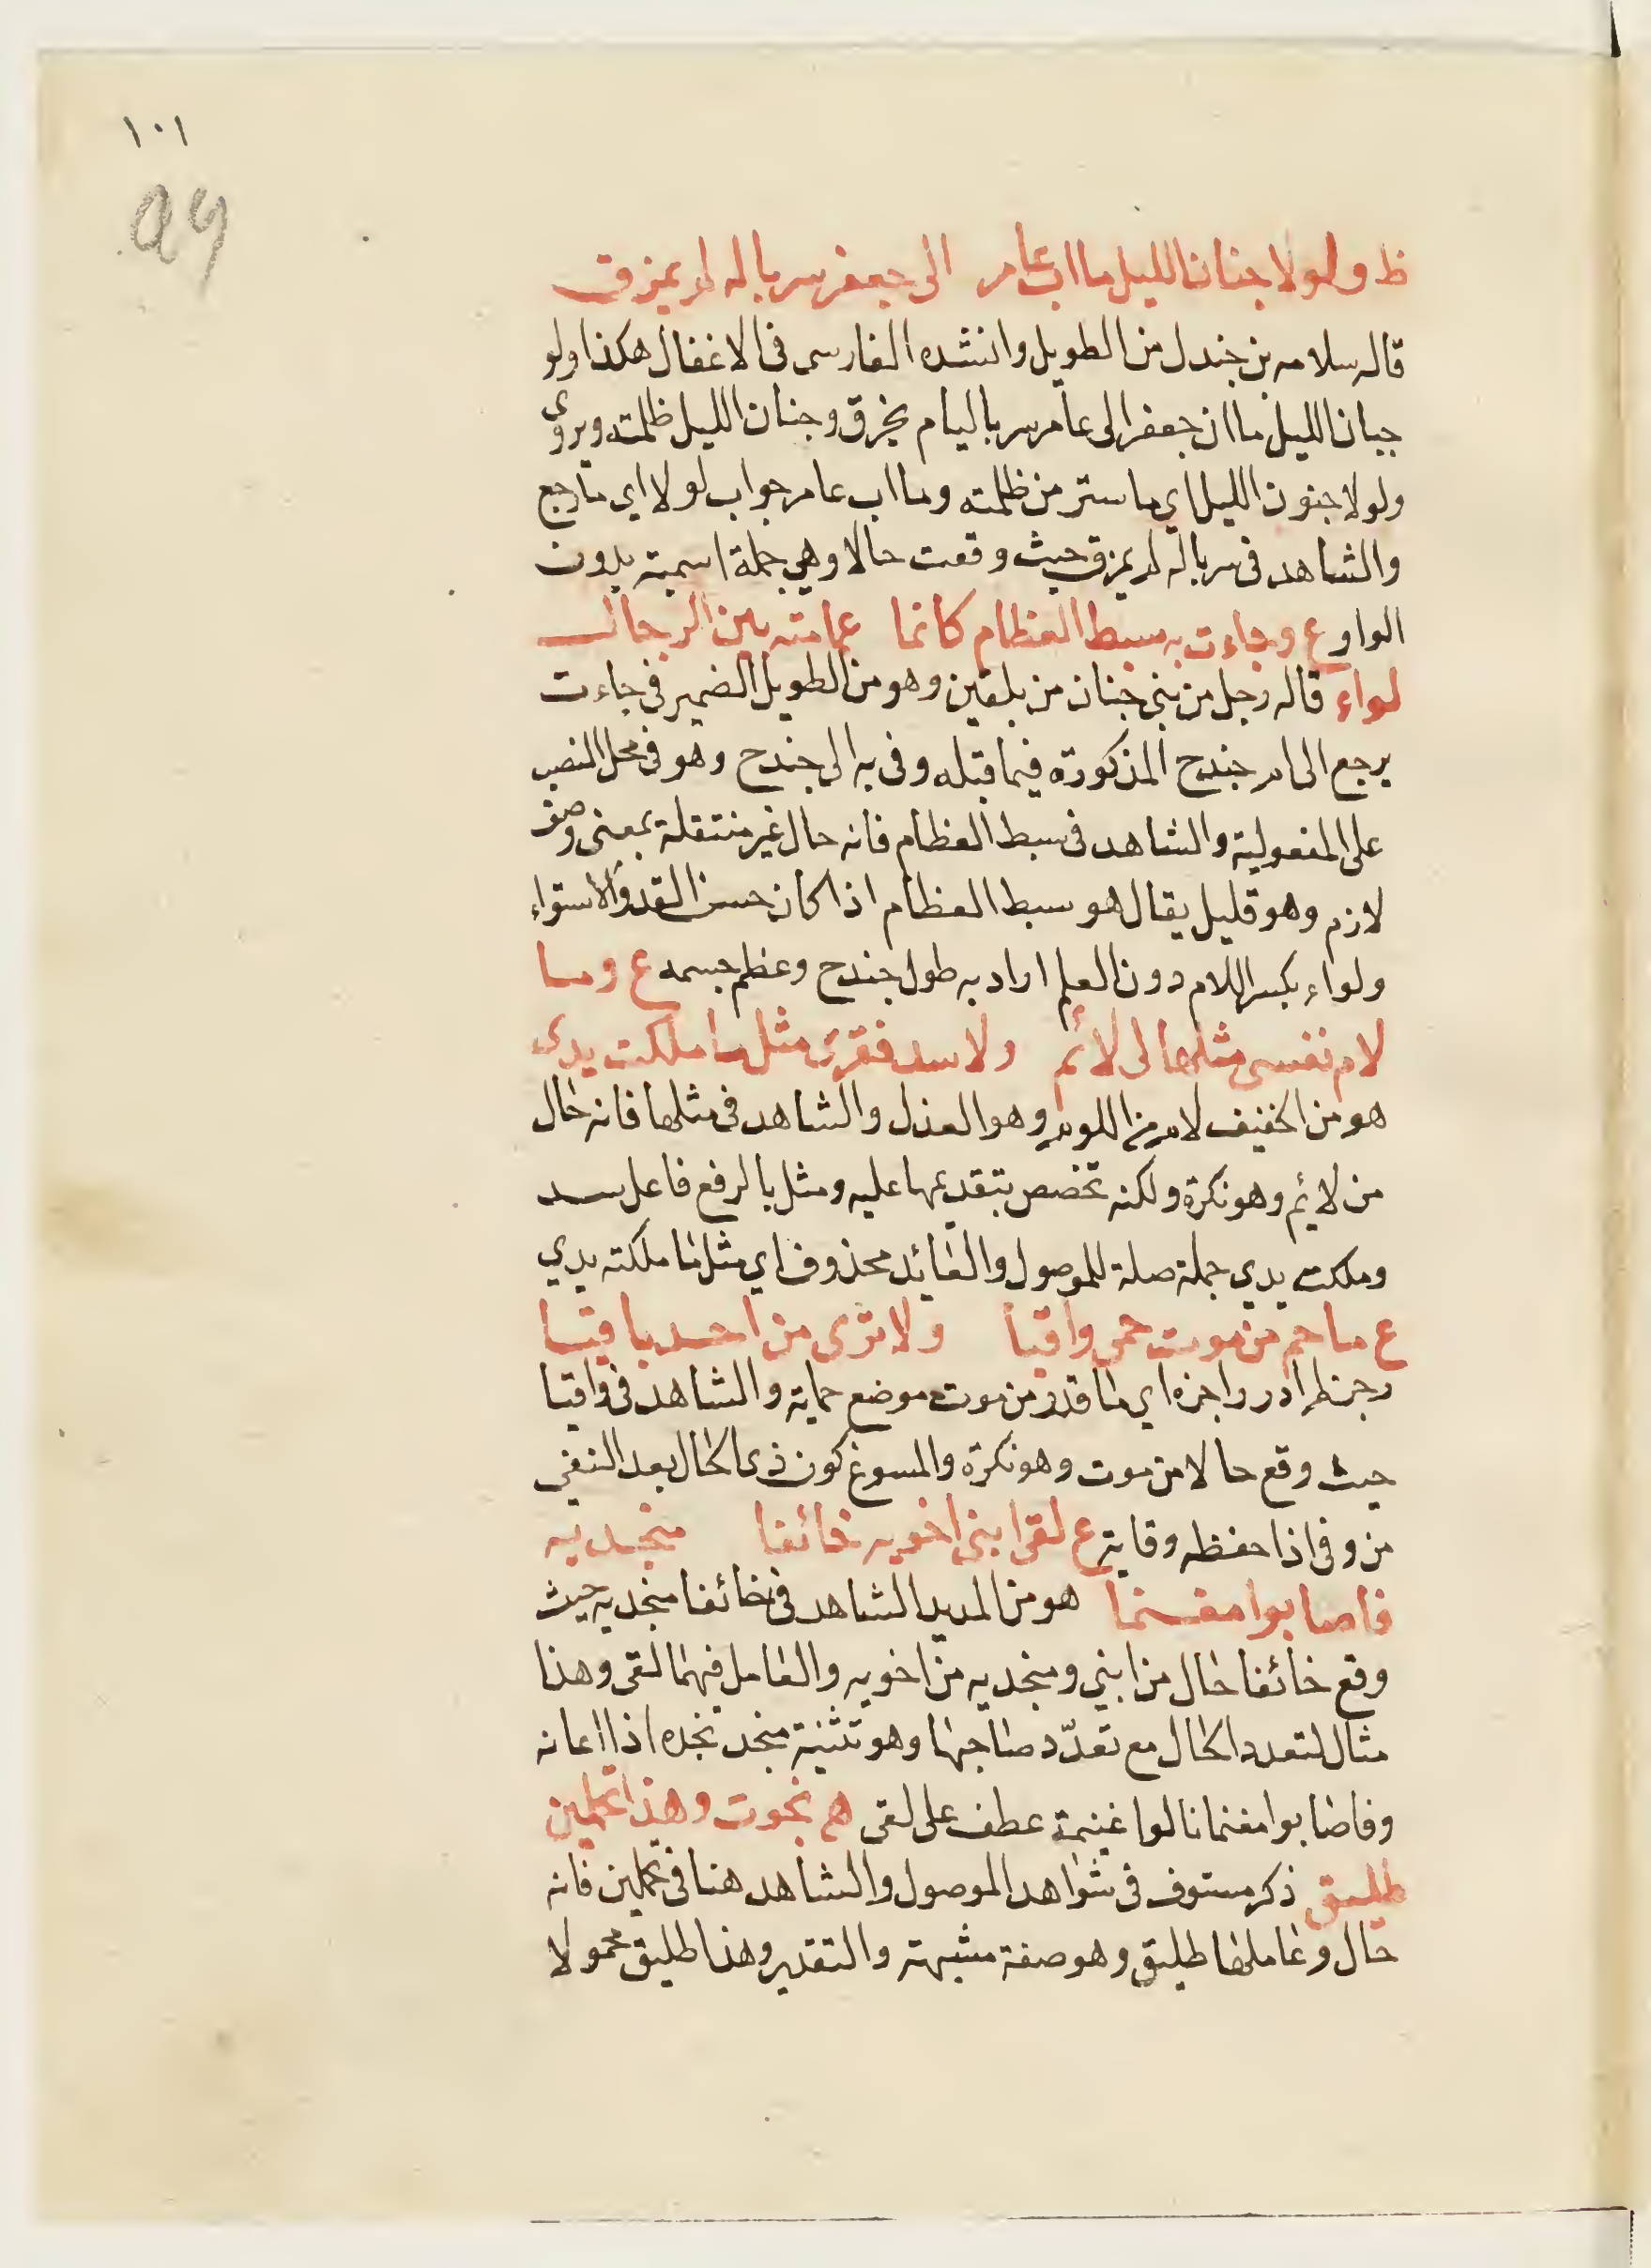 ١٠١
99
ظ ولولا جنان الليل ما اب عامر الى جعفر سرباله لم يمزق
قاله سلامه بن جندل من الطويل وانشده الفارسى فى الاغفال هكذا ولو
جبان الليل ما ان جعفر الى عامر سربا ليام يخرق وجنان الليل ظلمته ويروى
ولولا جنون الليل اي ما ستر من ظلمته وما اب عامر جواب لولا اي ما رجع
والشاهد فى سرباله لم يمزق حيث وقعت حالا وهي جملة اسمية بدون
الواو ع وجاءت به سبط العظام كانما عمامته بين الرجال
لواء قاله رجل من بني جنان من بلقين وهو من الطويل الضمير فى جاءت
يرجع الى ام جندح المذكورة فيما قبله وفى به الى جندح وهو فى محل النصب
على المفعولية والشاهد فى سبط العظام فانه حال غير منتقلة بمعنى وصف
لازم وهو قليل يقال هو سبط العظام اذا كان حسن القد والاستواء
ولواء بكسر اللام دون العلم اراد به طول جندح وعظم جسمه ع وما
لام نفسى مثلها لى لائم ولا سد فقرى مثل ما ملكت يدى
هو من الخفيف لام من اللوم وهو العذل والشاهد فى مثلها فانه حال
من لائم وهو نكرة ولكنه تخصص بتقديمها عليه ومثل بالرفع فاعل سد
وملكت يدي جملة صلة للموصول والعائد محذوف اي مثل ما ملكته يدي
ع ما حم من موت حمى واقيا ولا ترى من احد باقيا
رجز نظرا در راجزه اي ما قدر من موت موضع حماية والشاهد فى واقيا
حيث وقع حالا من موت وهو نكرة والمسوغ كون ذى الحال بعد النفي
من وقى اذا حفظه وقاية ع لقى ابني اخويه خائفا منجديه
فاصابوا مغنما هو من المديد الشاهد فى خائفا منجديه حيث
وقع خائفا حال من ابني ومنجديه من اخويه والعامل فيهما لقى وهذا
مثال لتعدد الحال مع تعدّد صاحبها وهو تثنية منجد نجده اذا اعانه
وفاصابوا مغنما نالوا غنيمة عطف على لقى هم نجوت وهذا تحملين
طليق ذكر مستوف فى شواهد الموصول والشاهد هنا فى تحملين فانه
حال وعاملها طليق وهو صفة مشبهة والتقدير وهذا طليق محمولا